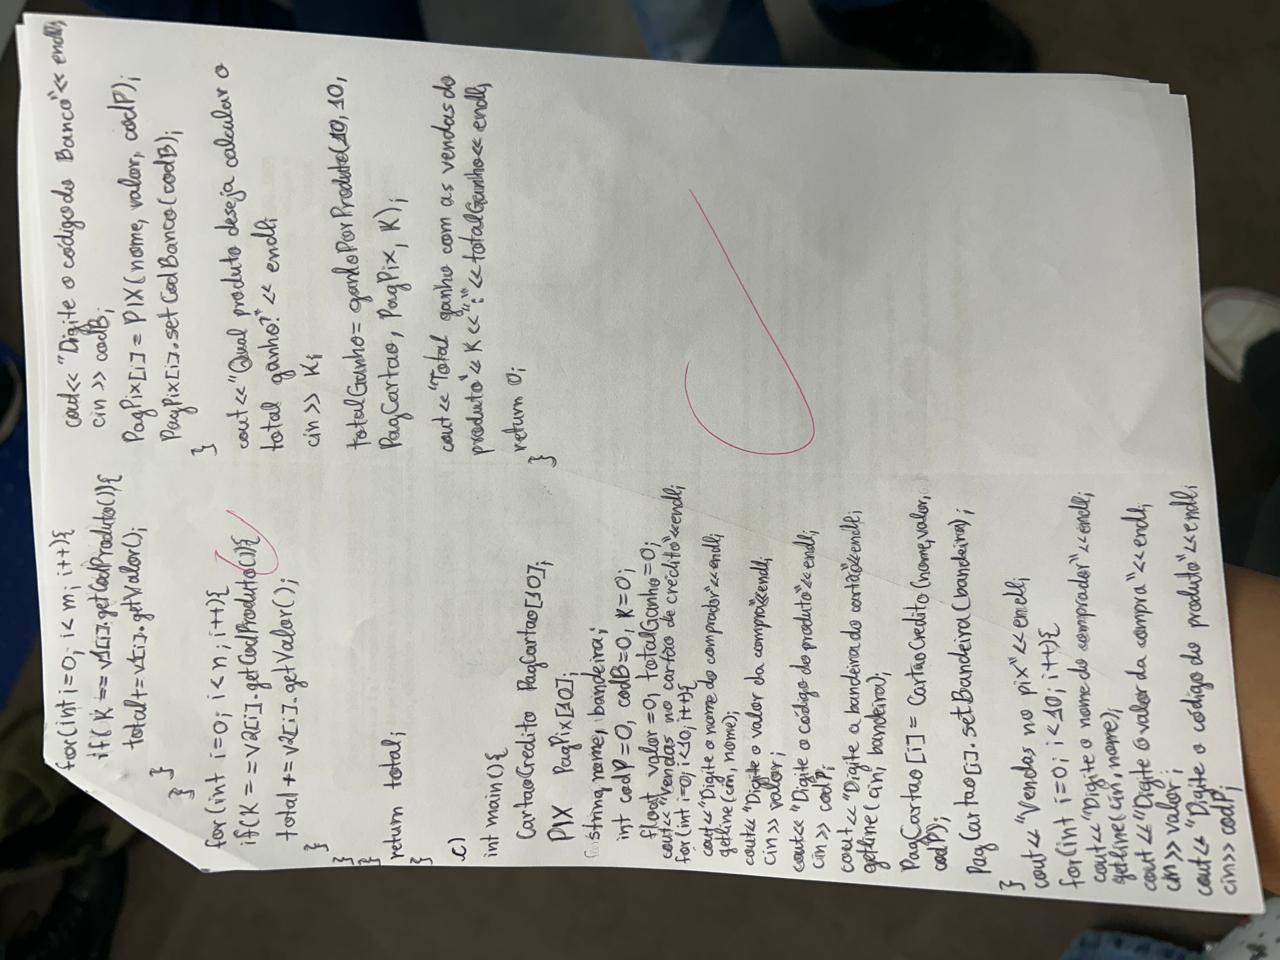 for(int i=0; i<m; i++){
if(K == v1[i].getCodProduto()){
total+=v1[i].getValor();
}
}
for(int i=0; i<n; i++){
if(K == v2[i].getCodProduto()){
total+=v2[i].getValor();
}
}
}
return total;
}
c)
int main(){
CartaoCredito PagCartao[10];
PIX PagPix[10];
string nome, bandeira;
int codP=0, codB=0, K=0;
float valor=0, totalGanho=0;
cout<<"Vendas no cartão de crédito"<<endl;
for(int i=0; i<10; i++){
cout<<"Digite o nome do comprador"<<endl;
getline(cin, nome);
cout<<"Digite o valor da compra"<<endl;
cin>> valor;
cout<< "Digite o código do produto"<<endl;
cin>> codP;
cout<< "Digite a bandeira do cartão"<<endl;
getline(cin, bandeira);
PagCartao[i] = CartaoCredito(nome,valor,
codP);
PagCartao[i].setBandeira(bandeira);
}
cout<<"Vendas no pix"<<endl;
for(int i=0; i<10; i++){
cout<<"Digite o nome do comprador"<<endl;
getline(cin, nome);
cout<<"Digite o valor da compra"<<endl;
cin>> valor;
cout<< "Digite o código do produto"<<endl;
cin>> codP;
cout<< "Digite o código do Banco"<< endl;
cin >> codB;
PagPix[i] = PIX(nome, valor, codP);
PagPix[i].setCodBanco(codB);
}
cout<<"Qual produto deseja calcular o
total ganho?"<< endl;
cin>> K;
totalGanho= ganhoPorProduto(10,10,
PagCartao, PagPix, K);
cout<<"Total ganho com as vendas do
produto"<< K <<":"<<totalGanho<< endl;
return 0;
}